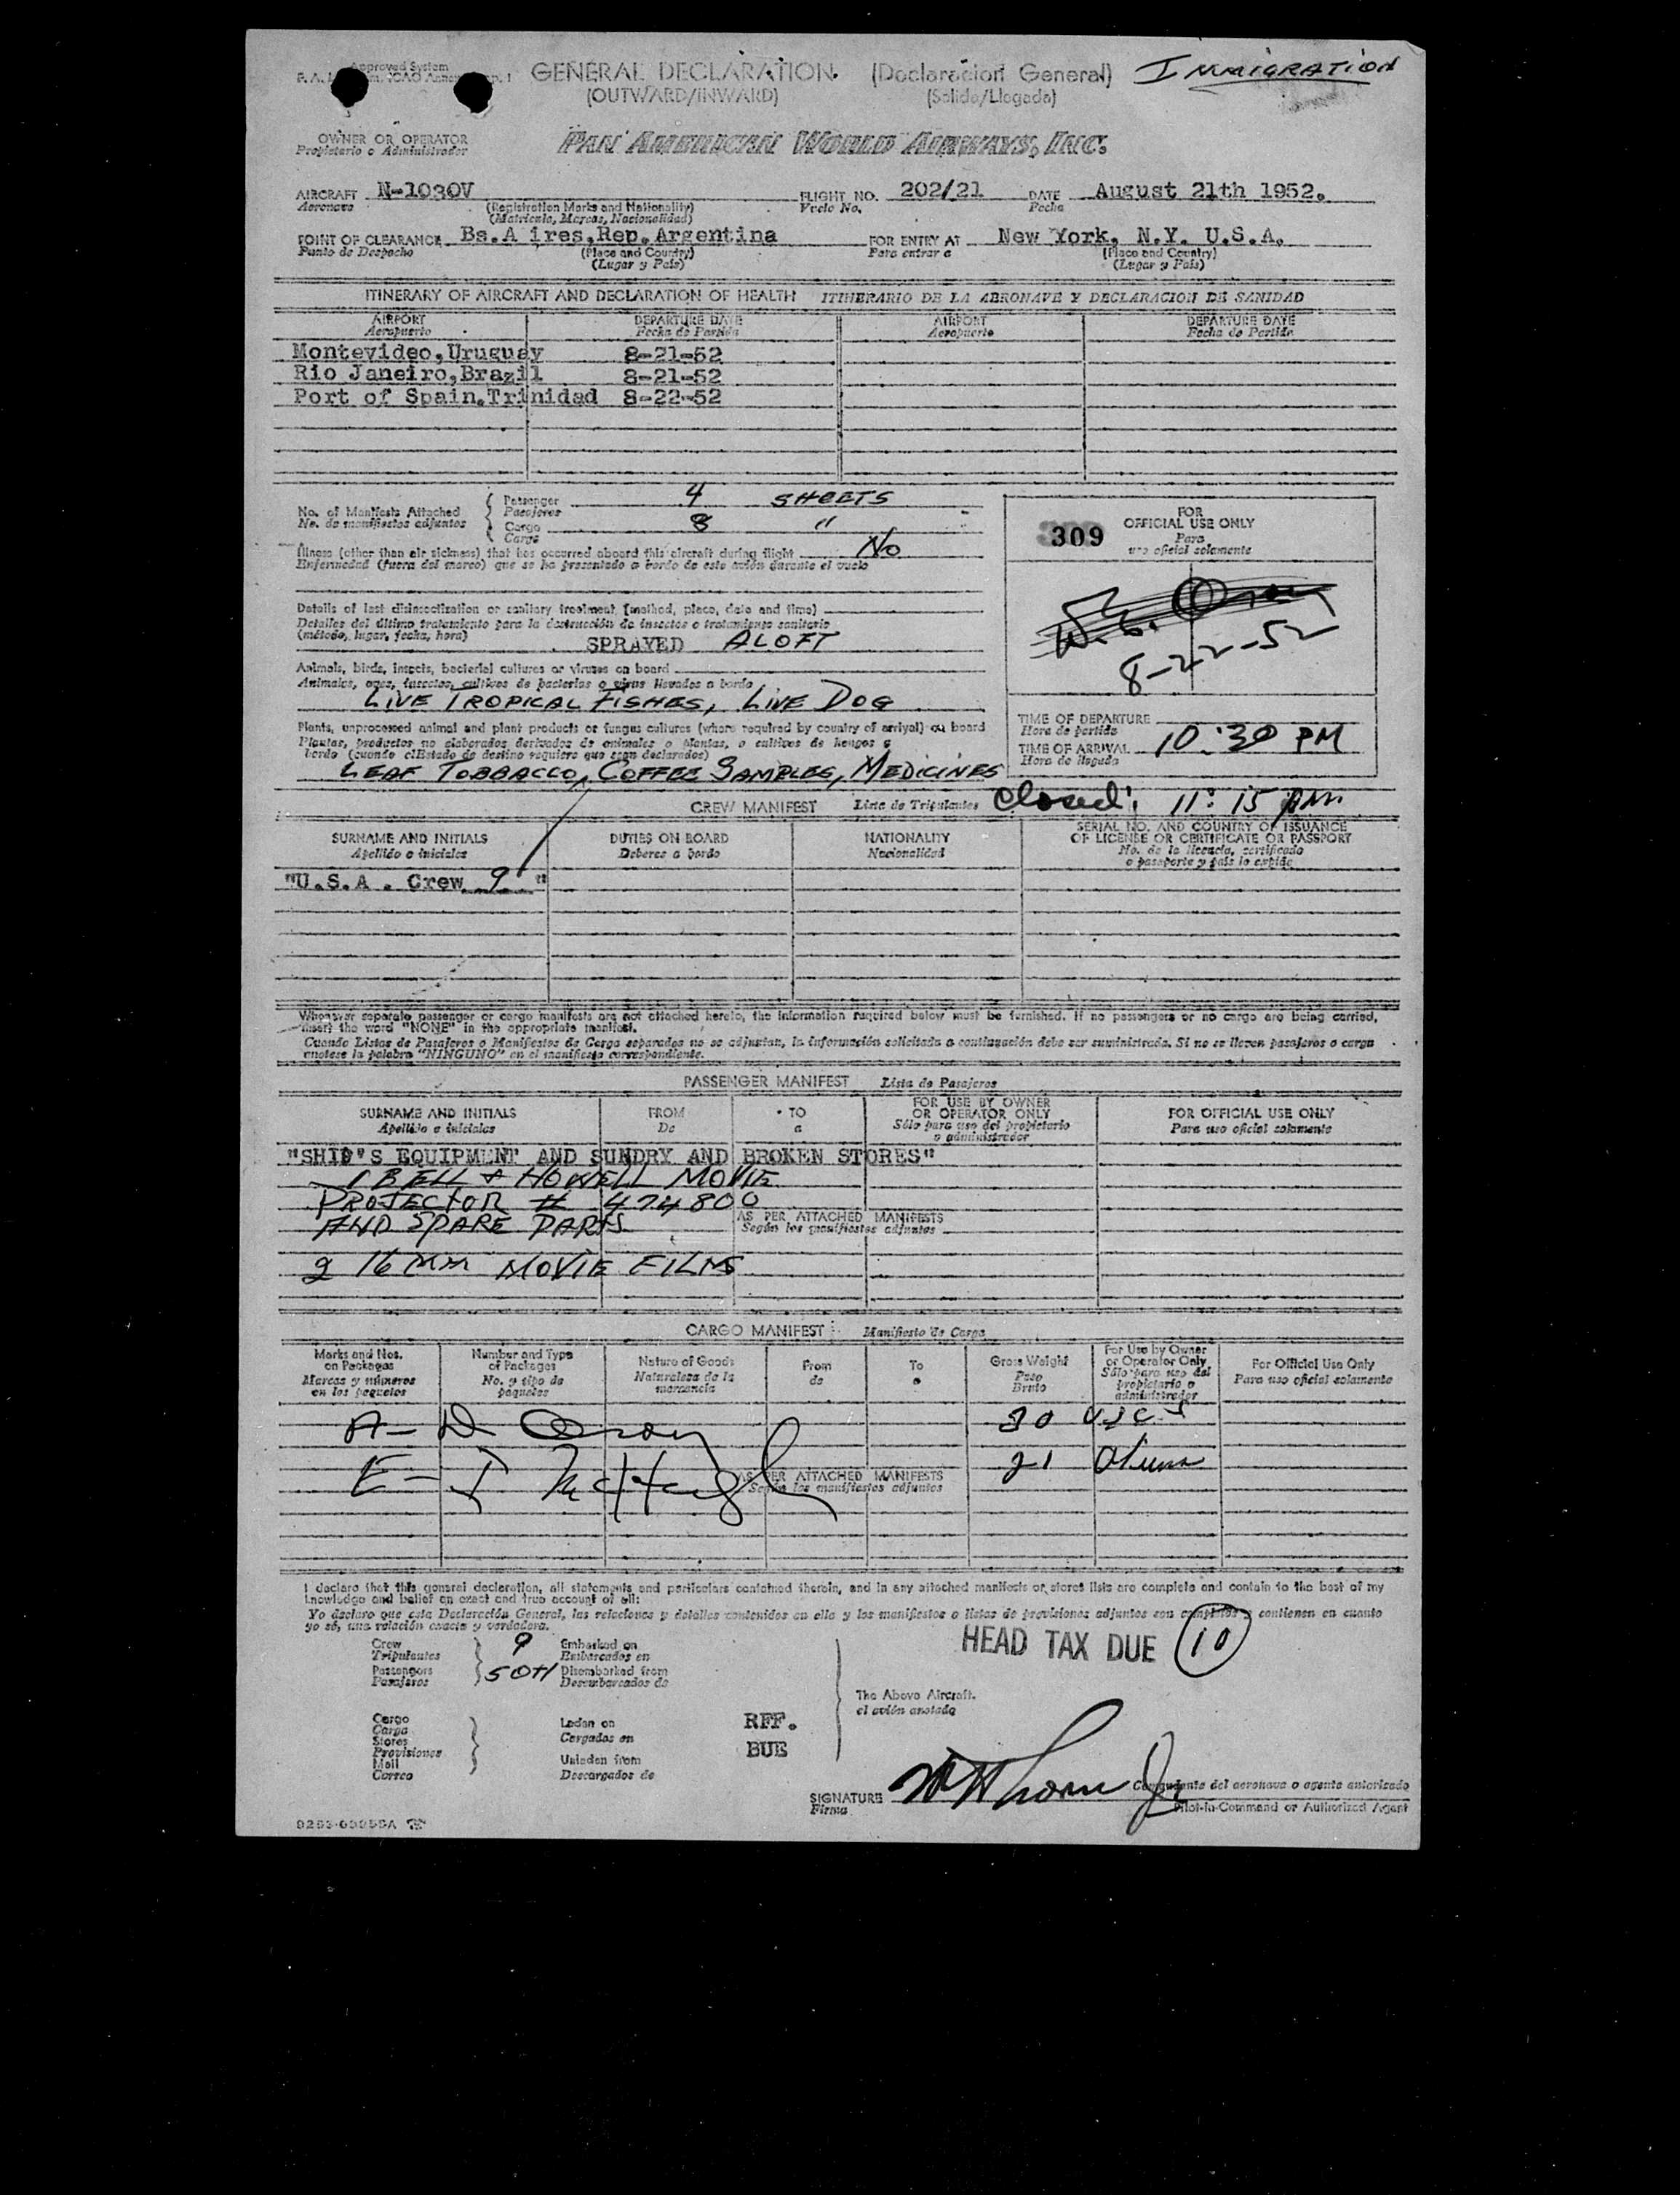 Approved System
GENERAL DECLARATION (Declaracion General)
IMMIGRATION
(OUTWARD/INWARD) (Salida/Llegada)
OWNER OR OPERATOR
Propietario o Administrador
PAN AMERICAN WORLD AIRWAYS, INC.
AIRCRAFT N-1030V FLIGHT NO. 202/21 DATE August 21th 1952.
Aeronave (Registration Marks and Nationality) Vuelo No. Fecha
(Matricula, Marcas, Nacionalidad)
POINT OF CLEARANCE Bs.A ires,Rep.Argentina FOR ENTRY AT New York, N.Y. U.S.A.
Punto de Despacho (Place and Country) Para entrar a (Place and Country)
(Lugar y Pais) (Lugar y Pais)
ITINERARY OF AIRCRAFT AND DECLARATION OF HEALTH ITINERARIO DE LA AERONAVE Y DECLARACION DE SANIDAD
AIRPORT DEPARTURE DATE AIRPORT DEPARTURE DATE
Aeropuerto Fecha de Partida Aeropuerto Fecha de Partida
Montevideo,Uruguay 8-21-52
Rio Janeiro,Brazil 8-21-52
Port of Spain.Trinidad 8-22-52
No. of Manifests Attached Passenger 4 SHEETS
No. de manifiestos adjuntos Pasajeros
Cargo 8 "
Carga
Illness (other than air sickness) that has occurred aboard this aircraft during flight No
Enfermedad (fuera del mareo) que se ha presentado a bordo de este avión durante el vuelo
Details of last disinsectization or sanitary treatment (method, place, date and time)
Detalles del último tratamiento para la destrucción de insectos o tratamiento sanitario
(método, lugar, fecha, hora)
SPRAYED ALOFT
Animals, birds, insects, bacterial cultures or viruses on board
Animales, aves, insectos, cultivos de bacterias o virus llevados a bordo
LIVE TROPICAL FISHES, LIVE DOG
Plants, unprocessed animal and plant products or fungus cultures (where required by country of arrival) on board
Plantas, productos no elaborados derivados de animales o plantas, o cultivos de hongos a
bordo (cuando el Estado de destino requiere que sean declarados)
LEAF TOBBACCO, COFFEE SAMPLES, MEDICINES
309
FOR
OFFICIAL USE ONLY
Para
uso oficial solamente
8-22-52
TIME OF DEPARTURE
Hora de partida
TIME OF ARRIVAL 10:30 PM
Hora de llegada
CREW MANIFEST Lista de Tripulantes Closed: 11:15 PM
SURNAME AND INITIALS DUTIES ON BOARD NATIONALITY SERIAL NO. AND COUNTRY OF ISSUANCE
OF LICENSE OR CERTIFICATE OR PASSPORT
Apellido e iniciales Deberes a bordo Nacionalidad No. de la licencia, certificado
o pasaporte y pais lo expide
"U.S.A. Crew 9 "
Whenever separate passenger or cargo manifests are not attached hereto, the information required below must be furnished. If no passengers or no cargo are being carried,
insert the word "NONE" in the appropriate manifest.
Cuando Listas de Pasajeros o Manifiestos de Carga separados no se adjuntan, la información solicitada a continuación debe ser suministrada. Si no se llevan pasajeros o carga
anotese la palabra "NINGUNO" en el manifiesto correspondiente.
PASSENGER MANIFEST Lista de Pasajeros
SURNAME AND INITIALS FROM TO FOR USE BY OWNER
OR OPERATOR ONLY FOR OFFICIAL USE ONLY
Apellido e iniciales De a Sólo para uso del propietario
o administrador Para uso oficial solamente
"SHIP'S EQUIPMENT AND SUNDRY AND BROKEN STORES"
1 BELL & HOWELL MOVIE
PROJECTOR # 474800
AND SPARE PARTS
AS PER ATTACHED MANIFESTS
Según los manifiestos adjuntos
2 16 MM MOVIE FILMS
CARGO MANIFEST Manifiesto de Carga
Marks and Nos.
on Packages
Marcas y números
en los paquetes
Number and Type
of Packages
No. y tipo de
paquetes
Nature of Goods
Naturaleza de la
mercancia
From
de
To
a
Gross Weight
Peso
Bruto
For Use by Owner
or Operator Only
Sólo para uso del
propietario o
administrador
For Official Use Only
Para uso oficial solamente
30 USC-S
E- J McHugh 21
AS PER ATTACHED MANIFESTS
Según los manifiestos adjuntos
I declare that this general declaration, all statements and particulars contained therein, and in any attached manifests or stores lists are complete and contain to the best of my
knowledge and belief an exact and true account of all:
Yo declaro que esta Declaración General, las relaciones y detalles contenidos en ella y los manifiestos o listas de provisiones adjuntos son completos y contienen en cuanto
yo sé, una relación exacta y verdadera.
HEAD TAX DUE 10
Crew 9 Embarked on
Tripulantes Embarcados en
Passengers 50+1 Disembarked from
Pasajeros Desembarcados de
The Above Aircraft.
el avión anotado
Cargo Laden on RFF.
Carga Cargados en
Stores
Provisiones BUE
Mail Unladen from
Correo Descargados de
SIGNATURE Comandante del aeronave o agente autorizado
Firma Pilot-in-Command or Authorized Agent